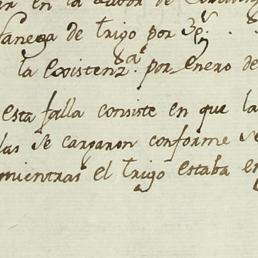 en la
fanega de trigo por 3
la existenz.ª por Enero de
esta falla consiste en que la
las se cargaron conforme se
mientras el trigo estaba en